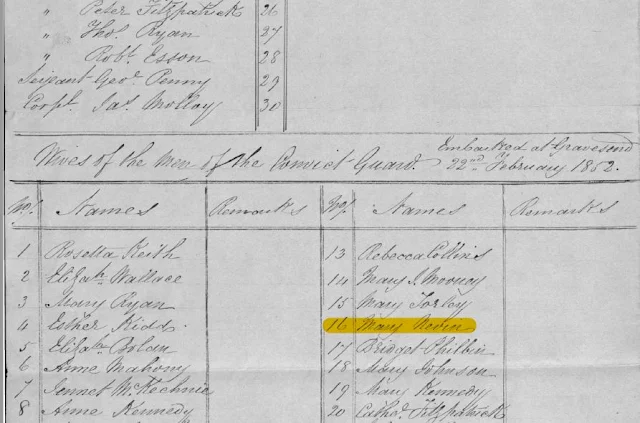 " Peter Fitzpatrick 26
" Thos. Ryan 27
" Robt. Esson 28
Serjeant Geo. Penny 29
Corpl. Jas. Molloy 30
Wives of the Men of the Convict Guard. Embarked at Gravesend
22nd February 1852.
No. Names Remarks No. Names Remarks
1 Rosetta Keith 13 Rebecca Collins
2 Elizah. Wallace 14 Mary J.
3 Mary Ryan 15 Mary Torley
4 Esther Kidd. 16 Mary Nevin
5 Elizah. Bolan 17 Bridget Philbin
6 Anne Mahony 18 Mary Johnson
7 Jennet McKechnie 19 Mary Kennedy
8 Anne Kennedy 20 Cathe. Fitzpatrick